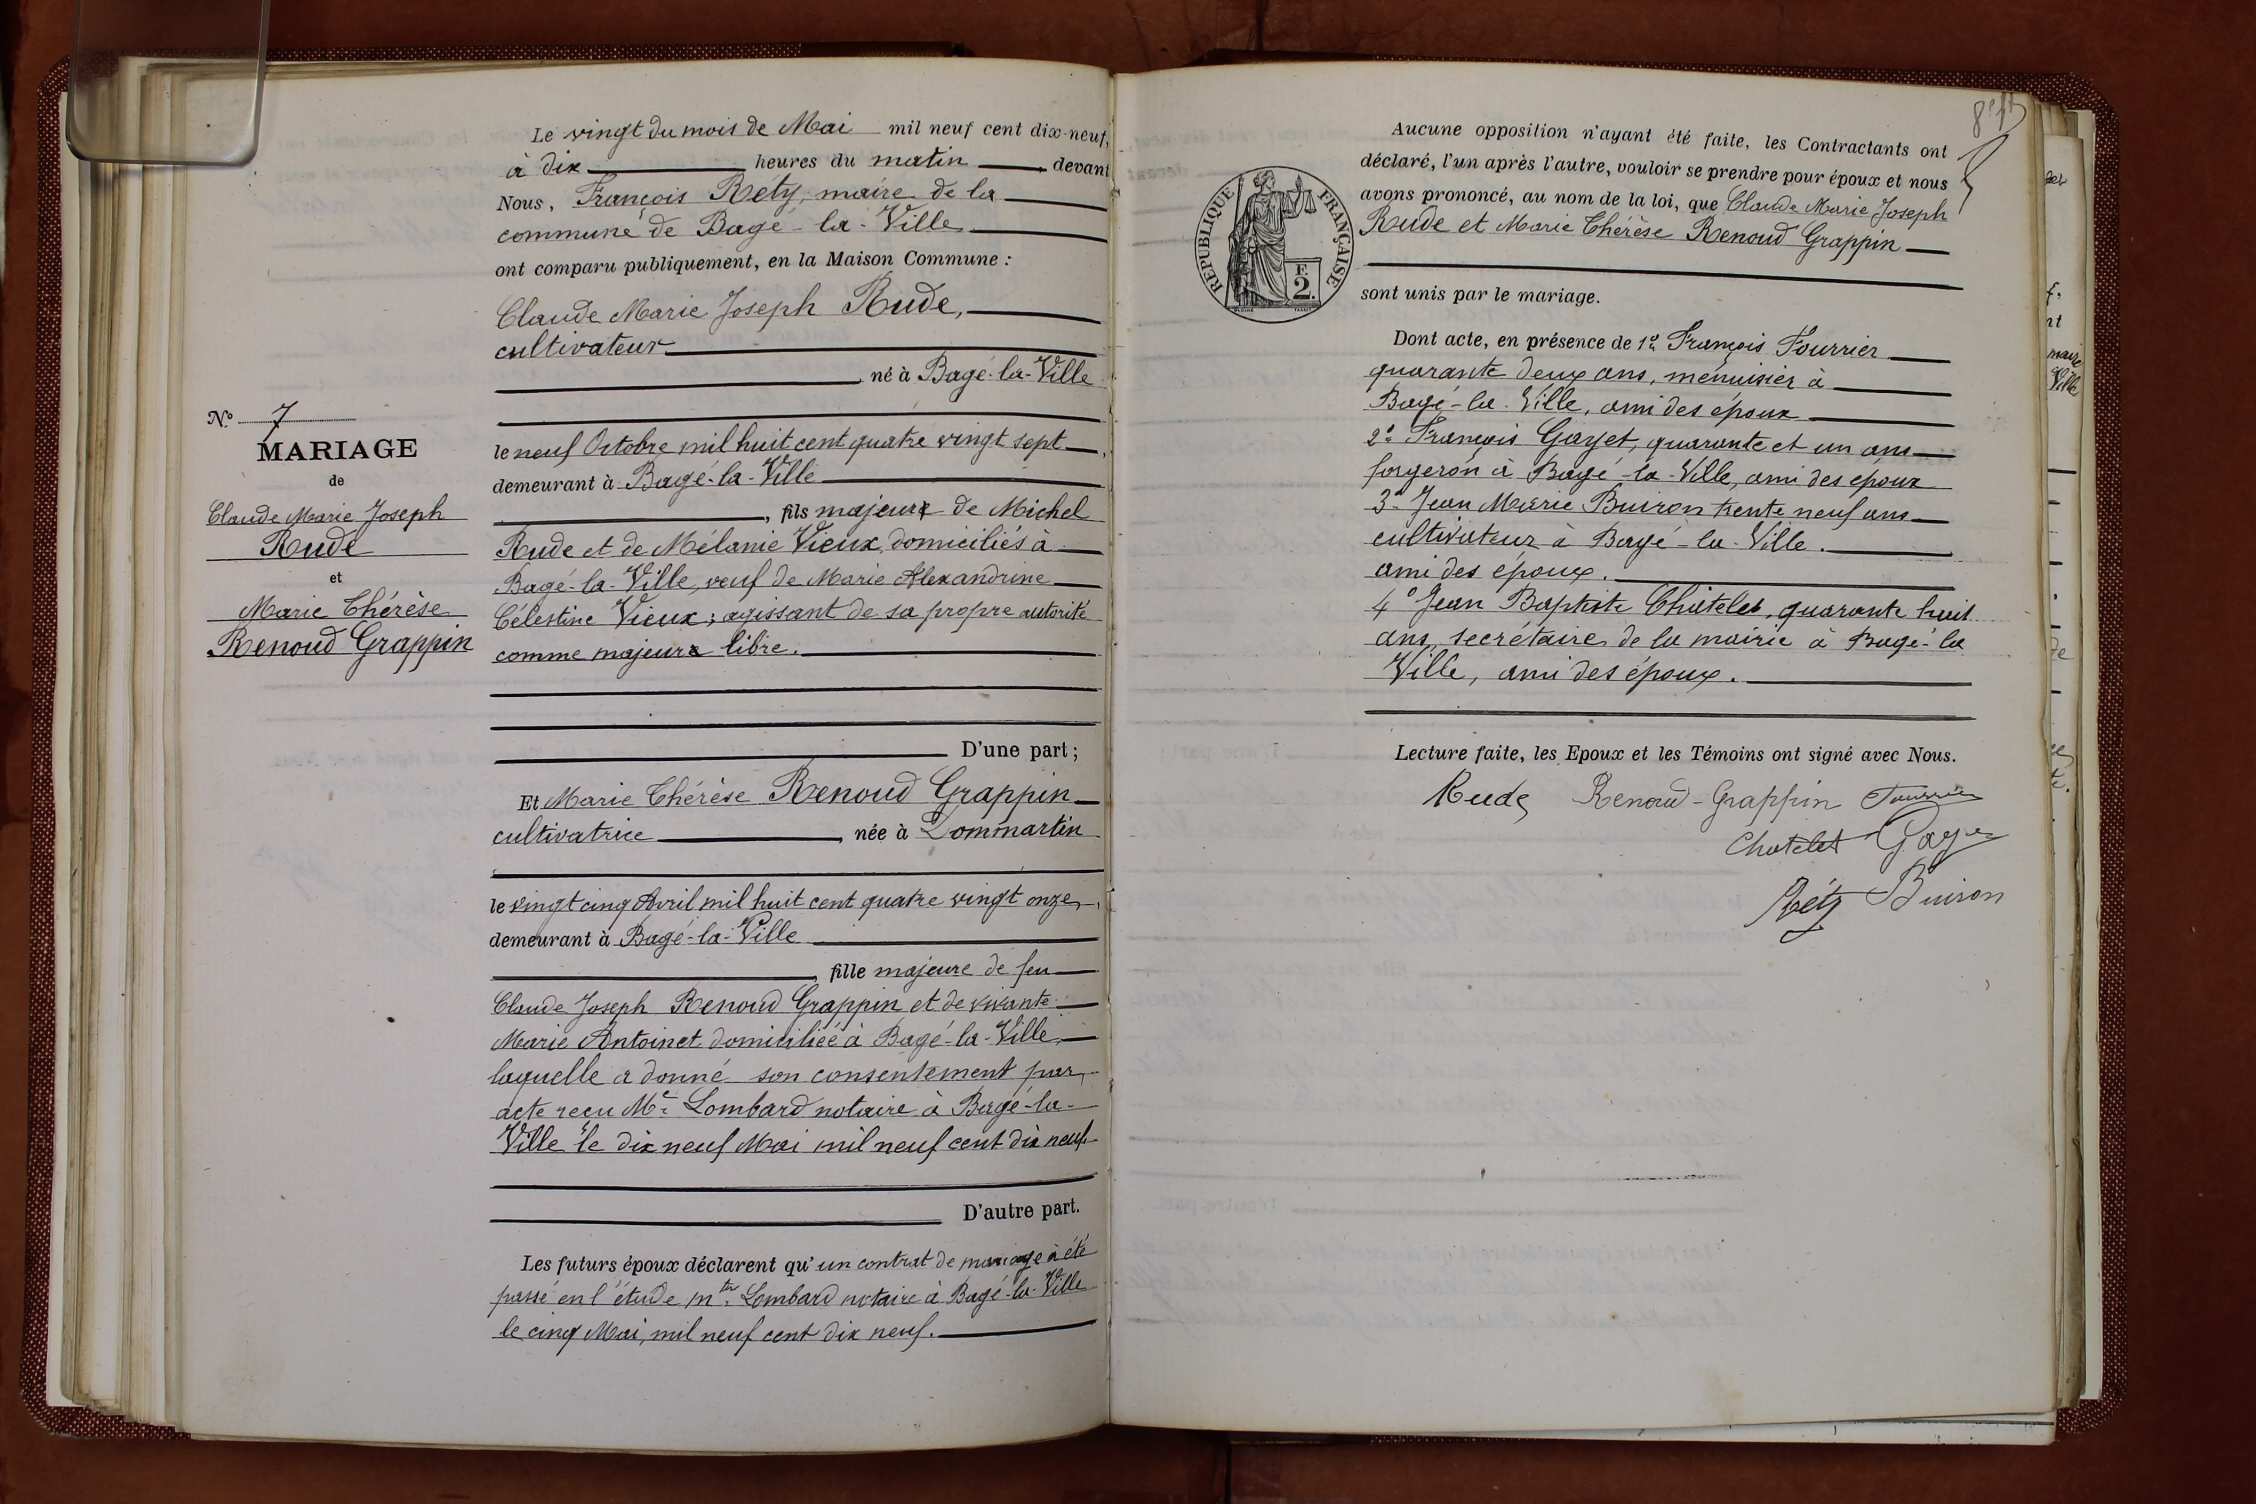 Le vingt du mois de Mai mil neuf cent dix-neuf,
à dix heures du matin, devant
Nous, François Réty, maire de la
commune de Bagé-la-Ville
ont comparu publiquement, en la Maison Commune :
Claude Marie Joseph Rude,
cultivateur
né à Bagé-la-Ville
le neuf Octobre mil huit cent quatre vingt sept,
demeurant à Bagé-la-Ville
, fils majeur de Michel
Rude et de Mélanie Vieux, domiciliés à
Bagé-la-Ville, veuf de Marie Alexandrine
Célestine Vieux ; agissant de sa propre autorité
comme majeur libre.
D'une part ;
Et Marie Thérèse Renoud Grappin
cultivatrice, née à Dommartin
le vingt cinq Avril mil huit cent quatre vingt onze,
demeurant à Bagé-la-Ville
, fille majeure de feu
Claude Joseph Renoud Grappin et de vivante
Marie Antoinet domiciliée à Bagé-la-Ville,
laquelle a donné son consentement par
acte reçu Me Lombard notaire à Bagé-la-
Ville le dix neuf Mai mil neuf cent dix neuf
D'autre part.
Les futurs époux déclarent qu'un contrat de mariage a été
passé en l'étude mtre Lombard notaire à Bagé-la-Ville
le cinq Mai, mil neuf cent dix neuf.
N° 7
MARIAGE
de
Claude Marie Joseph
Rude
et
Marie Thérèse
Renoud Grappin
RÉPUBLIQUE FRANÇAISE
F.
2.
Aucune opposition n'ayant été faite, les Contractants ont
déclaré, l'un après l'autre, vouloir se prendre pour époux et nous
avons prononcé, au nom de la loi, que Claude Marie Joseph
Rude et Marie Thérèse Renoud Grappin
sont unis par le mariage.
Dont acte, en présence de 1° François Fourrier
quarante deux ans, menuisier à
Bagé-la-Ville, ami des époux
2° François Gayet, quarante et un ans
forgeron à Bagé-la-Ville, ami des époux
3° Jean Marie Buiron trente neuf ans
cultivateur à Bagé-la-Ville.
ami des époux.
4° Jean Baptiste Châtelet, quarante huit
ans, secrétaire de la mairie à Bagé-la
Ville, ami des époux.
Lecture faite, les Epoux et les Témoins ont signé avec Nous.
Rude Renoud-Grappin Fourrier
Chatelet Gayet
Réty Buiron
maire
Ville